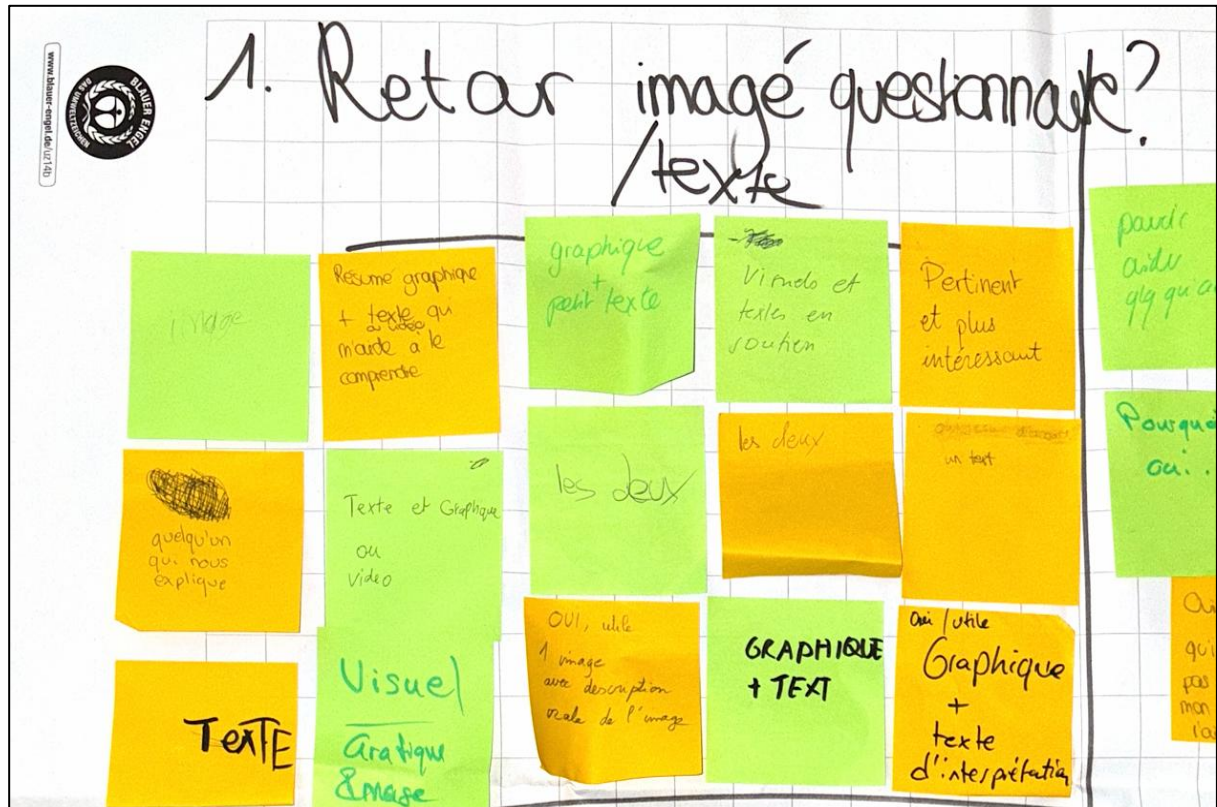 www.blauer-engel.de/uz14b
BLAUER ENGEL
DAS UMWELTZEICHEN
1. Retour imagé questionnaire?
/texte
image
Résumé graphique
+ texte qui
ou vidéo
m'aide a le
comprendre
graphique
+
petit texte
Visuels et
textes en
soutien
Pertinent
et plus
intéressant
pouvoir
aider
qlq qu'a
quelqu'un
qui nous
explique
Texte et Graphique
ou
video
les deux
les deux
un text
Pourquoi
oui..
TEXTE
Visuel
Grafique
&mage
OUI, utile
1 image
avec description
orale de l'image
GRAPHIQUE
+ TEXT
Oui / utile
Graphique
+
texte
d'interprétation
qui
pas
mon